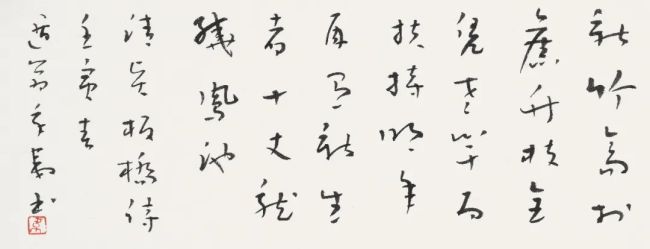 新竹高於
舊竹枝全
凭老竿为
扶持明年
再有新生
者十丈龍
繞鳳池
清板橋詩
壬寅春
翁書